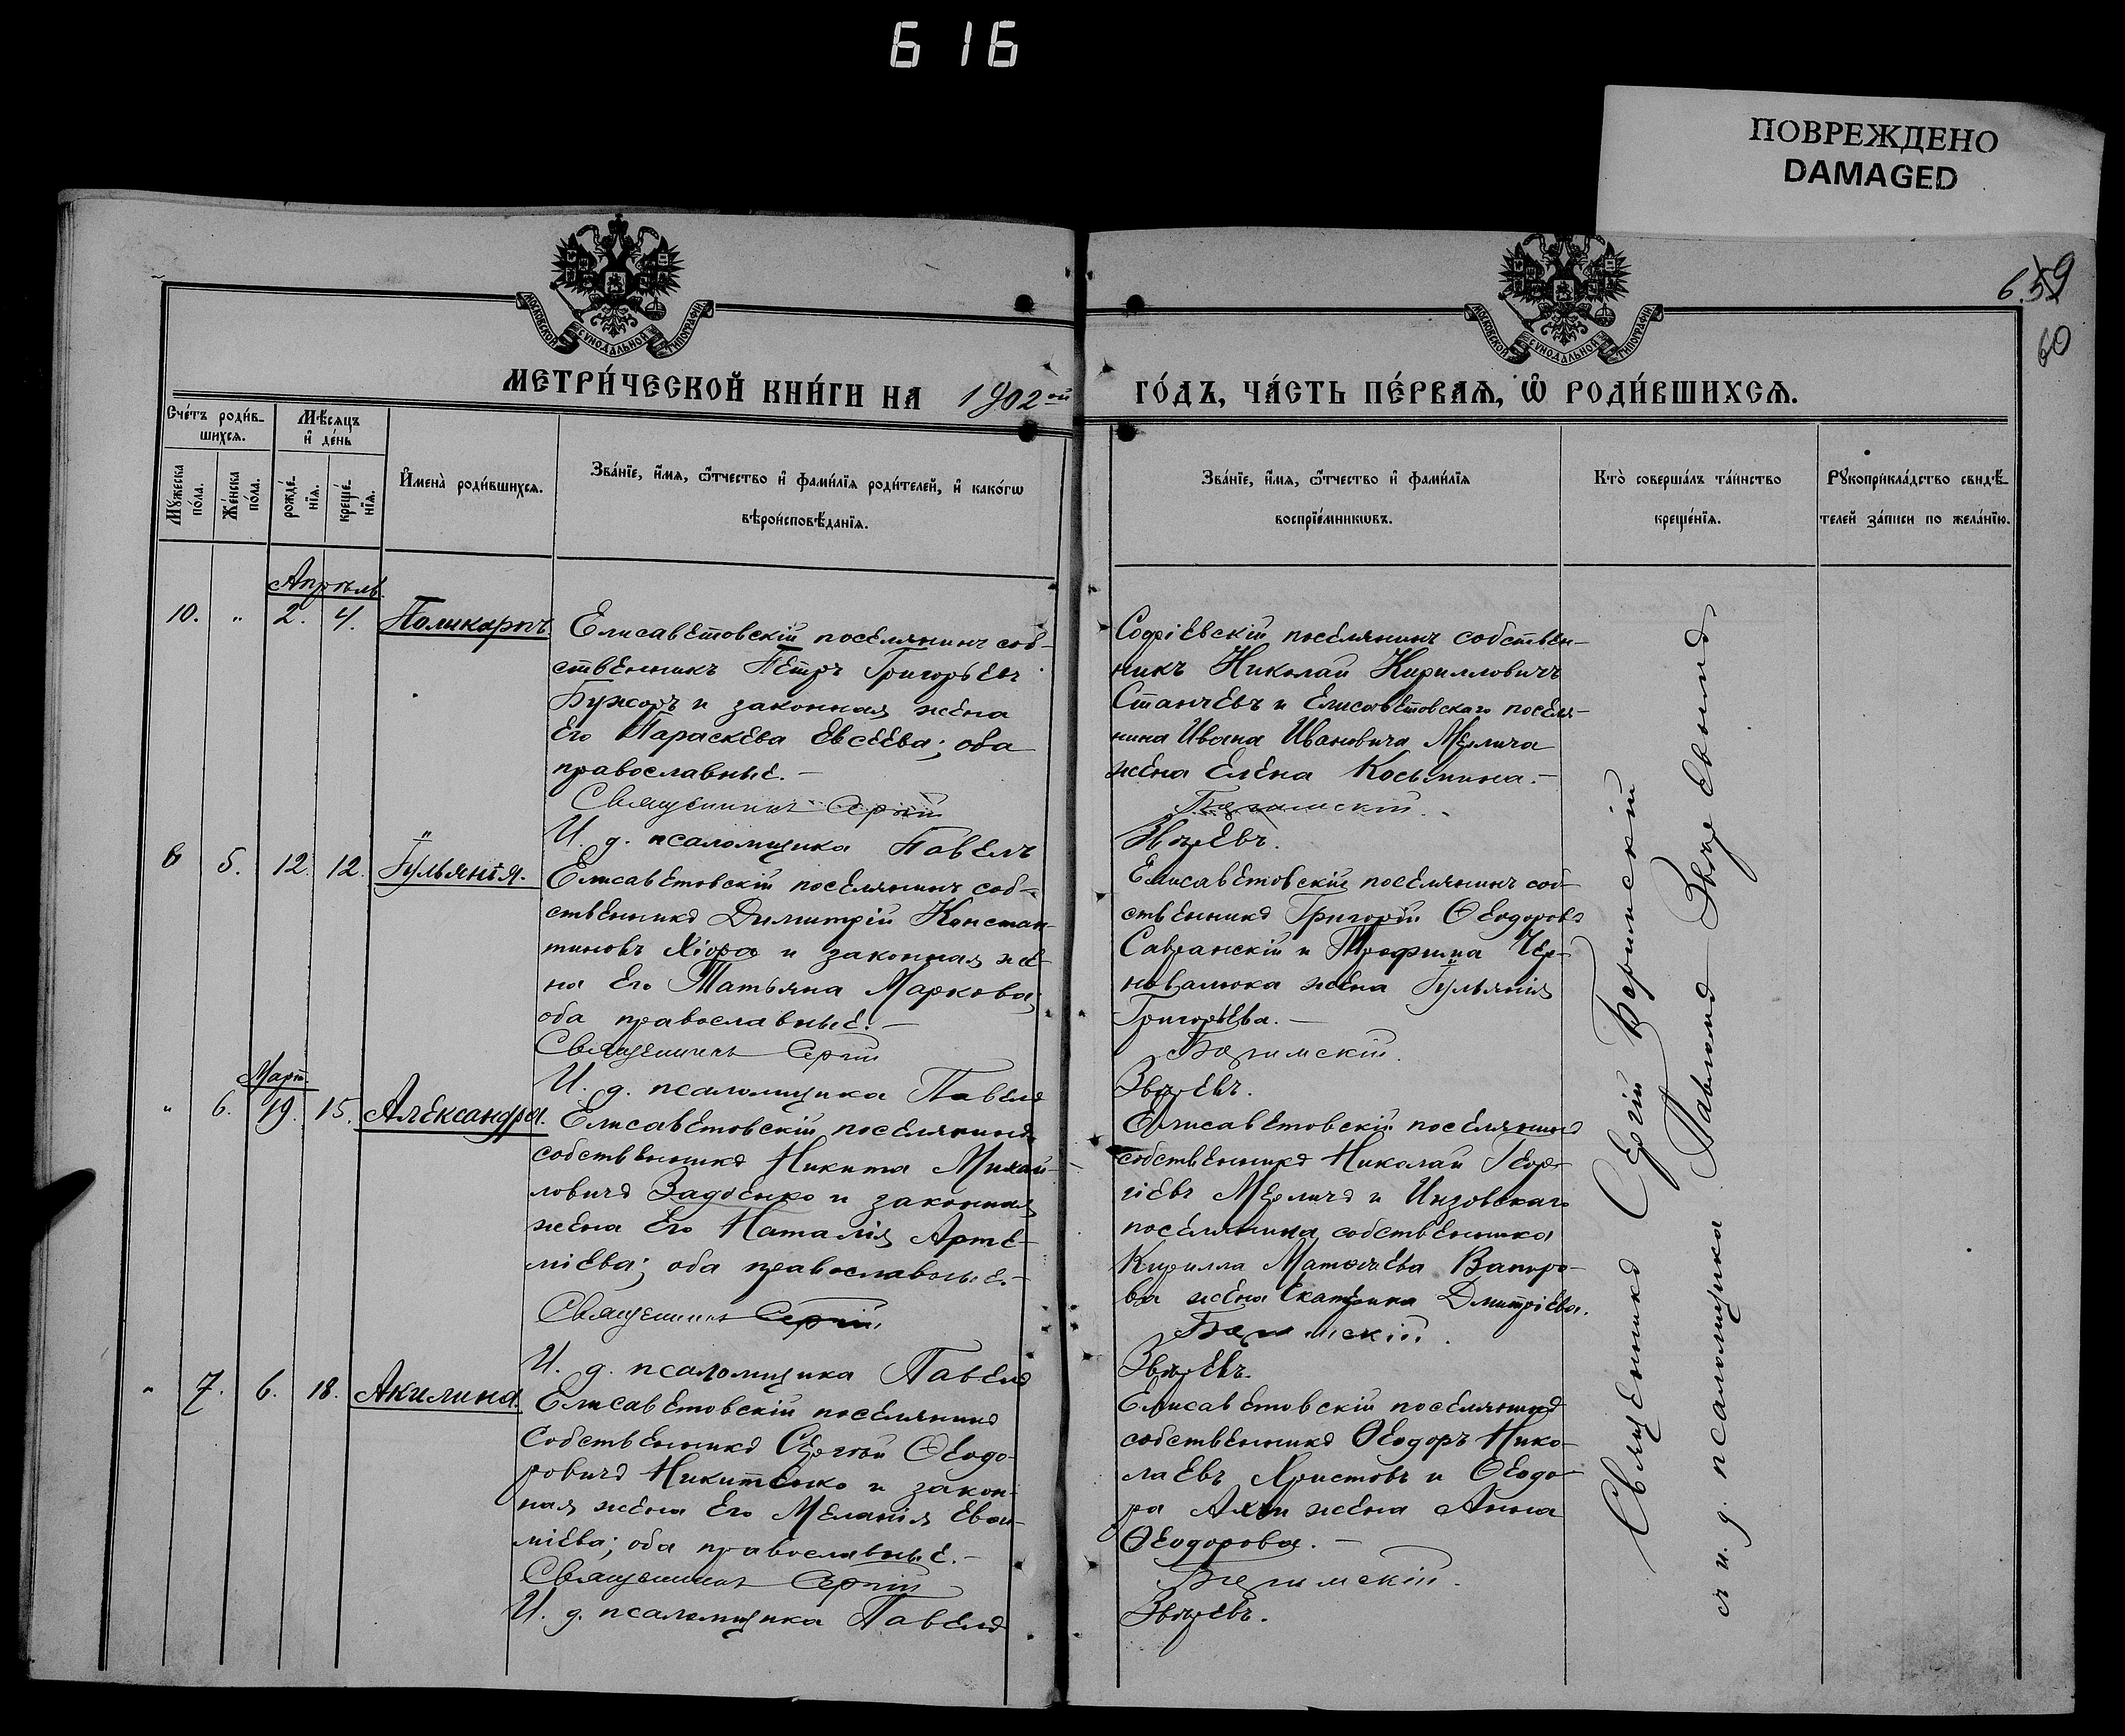 616
ПОВРЕЖДЕНО
DAMAGED
МОСКОВСКОЙ СУНОДАЛЬНОЙ ТИПОГРАФІИ
МОСКОВСКОЙ СУНОДАЛЬНОЙ ТИПОГРАФІИ
6.59
60
МЕТРИ́ЧЕСКОЙ КНИ́ГИ НА 1902ой
ГО́ДЪ, ЧА́СТЬ ПЕ́РВАЯ, Ѡ҆ РОДИ́ВШИХСЯ.
Сче́тъ роди́в-
шихся.
Мѣ́сяцъ
и҆ де́нь
Мꙋ́жеска
по́ла.
Же́нска
по́ла.
рожде́-
нїя.
креще́-
нїя.
И҆мена̀ роди́вшихся.
Зва́нїе, и҆́мя, ѻ҆́тчество и҆ фами́лїя роди́телей, и҆ како́гѡ
вѣроисповѣ́данїя.
Зва́нїе, и҆́мя, ѻ҆́тчество и҆ фами́лїя
воспрїе́мникѡвъ.
Кто̀ соверша́лъ та́инство
креще́нїя.
Рꙋкоприкла́дство свидѣ́-
телей за́писи по жела́нїю.
Апрѣль.
10. " 2. 4. Поликарпъ
Елисаветовскій поселянинъ соб-
ственникъ Петръ Григорьевъ
Бужоръ и законная жена
его Параскева Евсеева; оба
православные.-
Священникъ Сергій
И. д. псаломщика Павелъ
Софіевскій поселянинъ собствен-
никъ Николай Кирилловичъ
Станчевъ и Елисаветовскаго поселя-
нина Ивана Ивановича Мерлича
жена Елена Косьмина.-
Звѣревъ.
5. 12. 12. Іульянія.
Елисаветовскій поселянинъ соб-
ственникъ Димитрій Констан-
тиновъ Хіора и законная же-
на его Татьяна Маркова;
оба православные.-
Священникъ Сергій
И. д. псаломщика Павелъ
Елисаветовскій поселянинъ соб-
ственникъ Григорій Ѳеодоровъ
Савранскій и Трофима Чер-
новалюка жена Іульянія
Григорьева.-
Звѣревъ.
Март.
" 6. 19. 15. Александра.
Елисаветовскій поселянинъ
собственникъ Никита Михай-
ловичъ Задоенко и законная
жена его Наталія Арте-
міева; оба православные.-
Священникъ Сергій
И. д. псаломщика Павелъ
Елисаветовскій поселянинъ
собственникъ Николай Геор-
гіевъ Мерличъ и Инзовскаго
поселянина собственника
Кирилла Матвѣева Вапиро-
ва жена Екатерина Дмитріева.
Звѣревъ.
" 7. 6. 18. Акилина.
Елисаветовскій поселянинъ
собственникъ Сергѣй Ѳеодо-
ровичъ Никитенко и закон-
ная жена его Меланія
оба православные.-
Священникъ Сергій
И. д. псаломщика Павелъ
Елисаветовскій поселянинъ
собственникъ Ѳеодоръ Нико-
лаевъ Христовъ и Ѳеодо-
ра жена Анна
Ѳеодорова.-
Звѣревъ.
Священникъ Сергій
съ и. д. псаломщика Павломъ Звѣревымъ